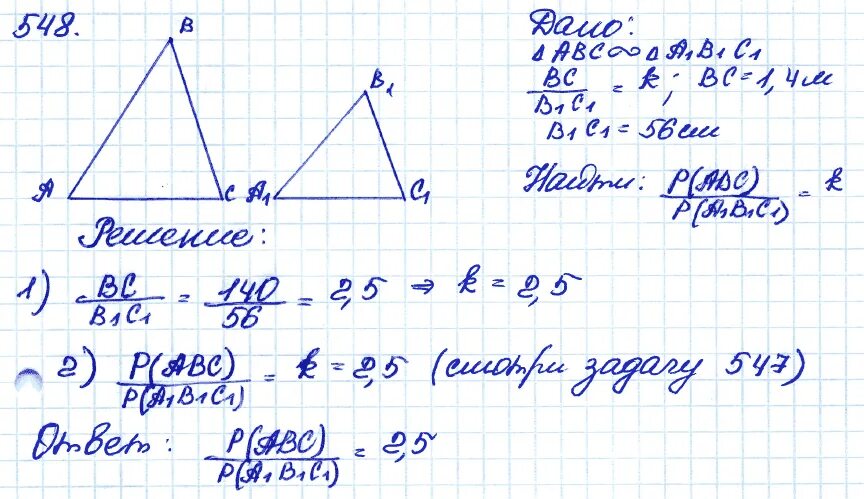 548.
B
B₁
A
C
A₁
C₁
Дано:
△ABC∞△A₁B₁C₁
BC/B₁C₁ = k; BC=1,4м
B₁C₁=56см
Найти: P(ABC)/P(A₁B₁C₁) = k
Решение:
1) BC/B₁C₁ = 140/56 = 2,5 ⇒ k = 2,5
2) P(ABC)/P(A₁B₁C₁) = k = 2,5 (смотри задачу 547)
Ответ: P(ABC)/P(A₁B₁C₁) = 2,5